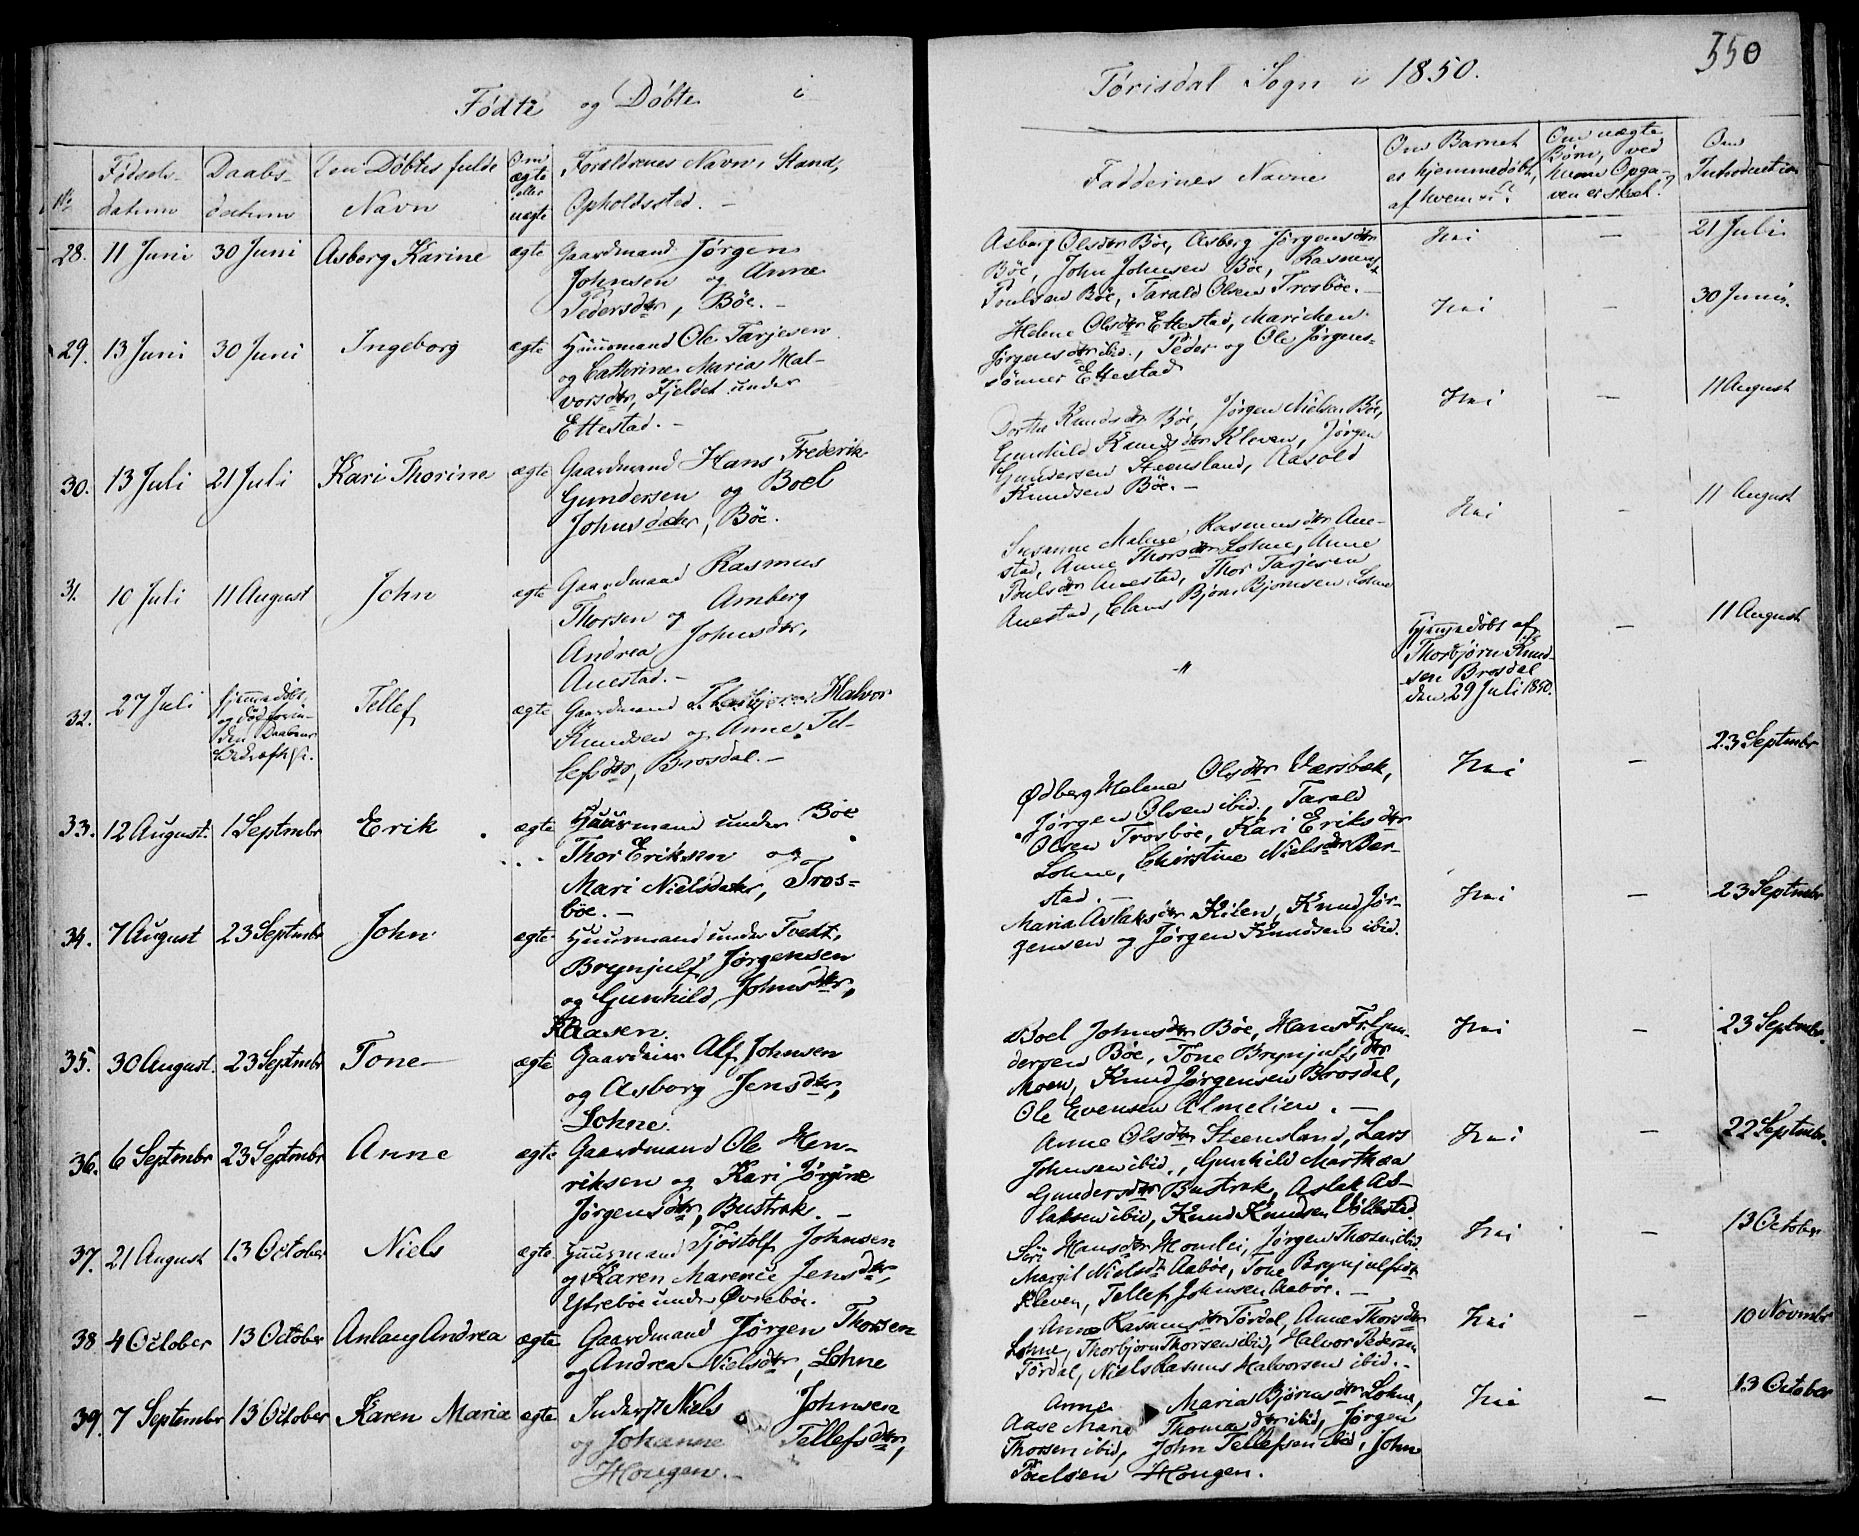 Fødte og Døbte i
Tørisdal Sogn i 1850.
350
No
Fødsels-
datum
Daabs-
datum
Den Døbtes fulde
Navn
Om
ægte
eller
uægte
Forældrenes Navn, Stand,
Opholdssted. -
Faddernes Navne
Om Barnet
er hjemmedøbt,
af hvem &c.
Om uægte
Børn, ved
hvem Opga-
ven er skeet.
Om
Introduction
28. 11 Juni 30 Juni Asberg Karine ægte Gaardmand Jørgen
Johnsen og Anne
Pedersdtr, Bøe. -
Asborg Olsdtr Bøe, Asberg Jørgensdtr
Bøe, John Johnsen Bøe, Rasmus
Poulsen Bøe, Tarald Olsen Trosbøe. -
Nei - 21 Juli
29. 13 Juni 30 Juni Ingeborg ægte Huusmand Ole Tarjesen
og Cathrine Maria Hal-
vorsdtr, Fjeldet under
Ettestad. -
Helene Olsdtr Ettestad, Marichen
Jørgensdtr ibid., Peder og Ole Jørgens-
sønner Ettestad
Nei - 30 Juni.
30. 13 Juli 21 Juli Kari Thorine ægte Gaardmand Hans Frederik
Gundersen og Boel
Johnsdatter, Bøe.
Dorthe Knudsdtr Bøe, Jørgen Nielsen Bøe,
Gunhild Knudsdtr Kleven, Jørgen
Gundersen Steensland, Aasold
Knudsen Bøe. -
Nei - 11 August
31. 10 Juli 11 August John ægte Gaardmand Rasmus
Thorsen og Amberg
Andrea Johnsdtr,
Auestad. -
Susanne Malene Rasmusdtr Aue-
stad, Anne Thorsdtr Lohne, Anne
Poulsdtr Auestad, Thor Tarjesen
Auestad, Claus Bjørn Bjørnsen Lohne
Nei - 11 August
32. 27 Juli Hjemmedøbt
og død forin-
den Daabens
Bekræft.
Tellef ægte Gaardmand Thorbjørn Halvor
Knudsen og Anne Tel-
lefsdtr, Brosdal. -
"
Hjemmedøbt af
Thorbjørn Knud-
sen Brosdal
den 29 Juli 1850.
- 11 August
33. 12 August. 1 Septmbr Erik ægte Huusmand under Bøe
Thor Eriksen og
Mari Nielsdatter, Tros-
bøe. -
Ødberg Helene Olsdtr Værsbak,
Jørgen Olsen ibid., Tarald
Olsen Trosbøe, Kari Eriksdtr
Lohne, Christine Nielsdtr Ber-
stad. -
Nei - 23 Septmbr
34. 7 August 23 Septmbr John ægte Huusmand under Tveit,
Brynjulf Jørgensen
og Gunhild Johnsdtr,
Kaasen.
Maria Aslaksdtr Kilen, Knud Jør-
gensen og Jørgen Knudsen ibid.
Nei - 23 Septmbr
35. 30 August. 23 Septmbr Tone ægte Gaardeier Alf Johnsen
og Asborg Jensdtr,
Lohne.
Boel Johnsdtr Bøe, Hans Fr. Gun-
dersen Bøe, Tone Brynjulfsdtr
Moen, Knud Jørgensen Brosdal,
Ole Evensen Almelien. -
Nei - 23 Septmbr.
36. 6 Septmbr 23 Septmbr Anne ægte Gaardmand Ole Hen-
riksen og Kari Jørgine
Jørgensdtr, Bustrak. -
Anne Olsdtr Steensland, Lars
Johnsen ibid., Gunhild Marthea
Gundersdtr Bustrak, Aslak As-
laksen ibid, Knud Knudsen Vollestad.
Nei - 22 Septmbr.
37. 21 August 13 October Niels ægte Huusmand Tjøstolf Johnsen
og Karen Marence Jensdtr,
Ytrebøe under Øvrebøe.
Siri Hansdtr Homlei, Jørgen Thorsen ibid.
Margit Nielsdtr Aabøe, Tone Brynjulfsdtr
Kleven, Tellef Johnsen Aabøe. -
Nei - 13 October
38 4 October 13 October Anlaug Andrea ægte Gaardmand Jørgen Thorsen
og Andrea Nielsdtr, Lohne
Anne Rasmusdtr Tørdal, Anne Thorsdtr
Lohne, Thorbjørn Thorsen ibid, Halvor Pedersen
Tørdal, Niels Rasmus Halvorsen ibid. -
Nei - 10 Novmbr
39. 7 Septembr 13 October Karen Maria ægte Inderst Niels Johnsen
og Johanne Tellefsdtr,
Hougen. -
Anne Maria Bjørnsdtr Lohne,
Aase Maria Thomasdtr ibid, Jørgen
Thorsen ibid, John Tellefsen ibid, John
Poulsen Hougen.
Nei - 13 October